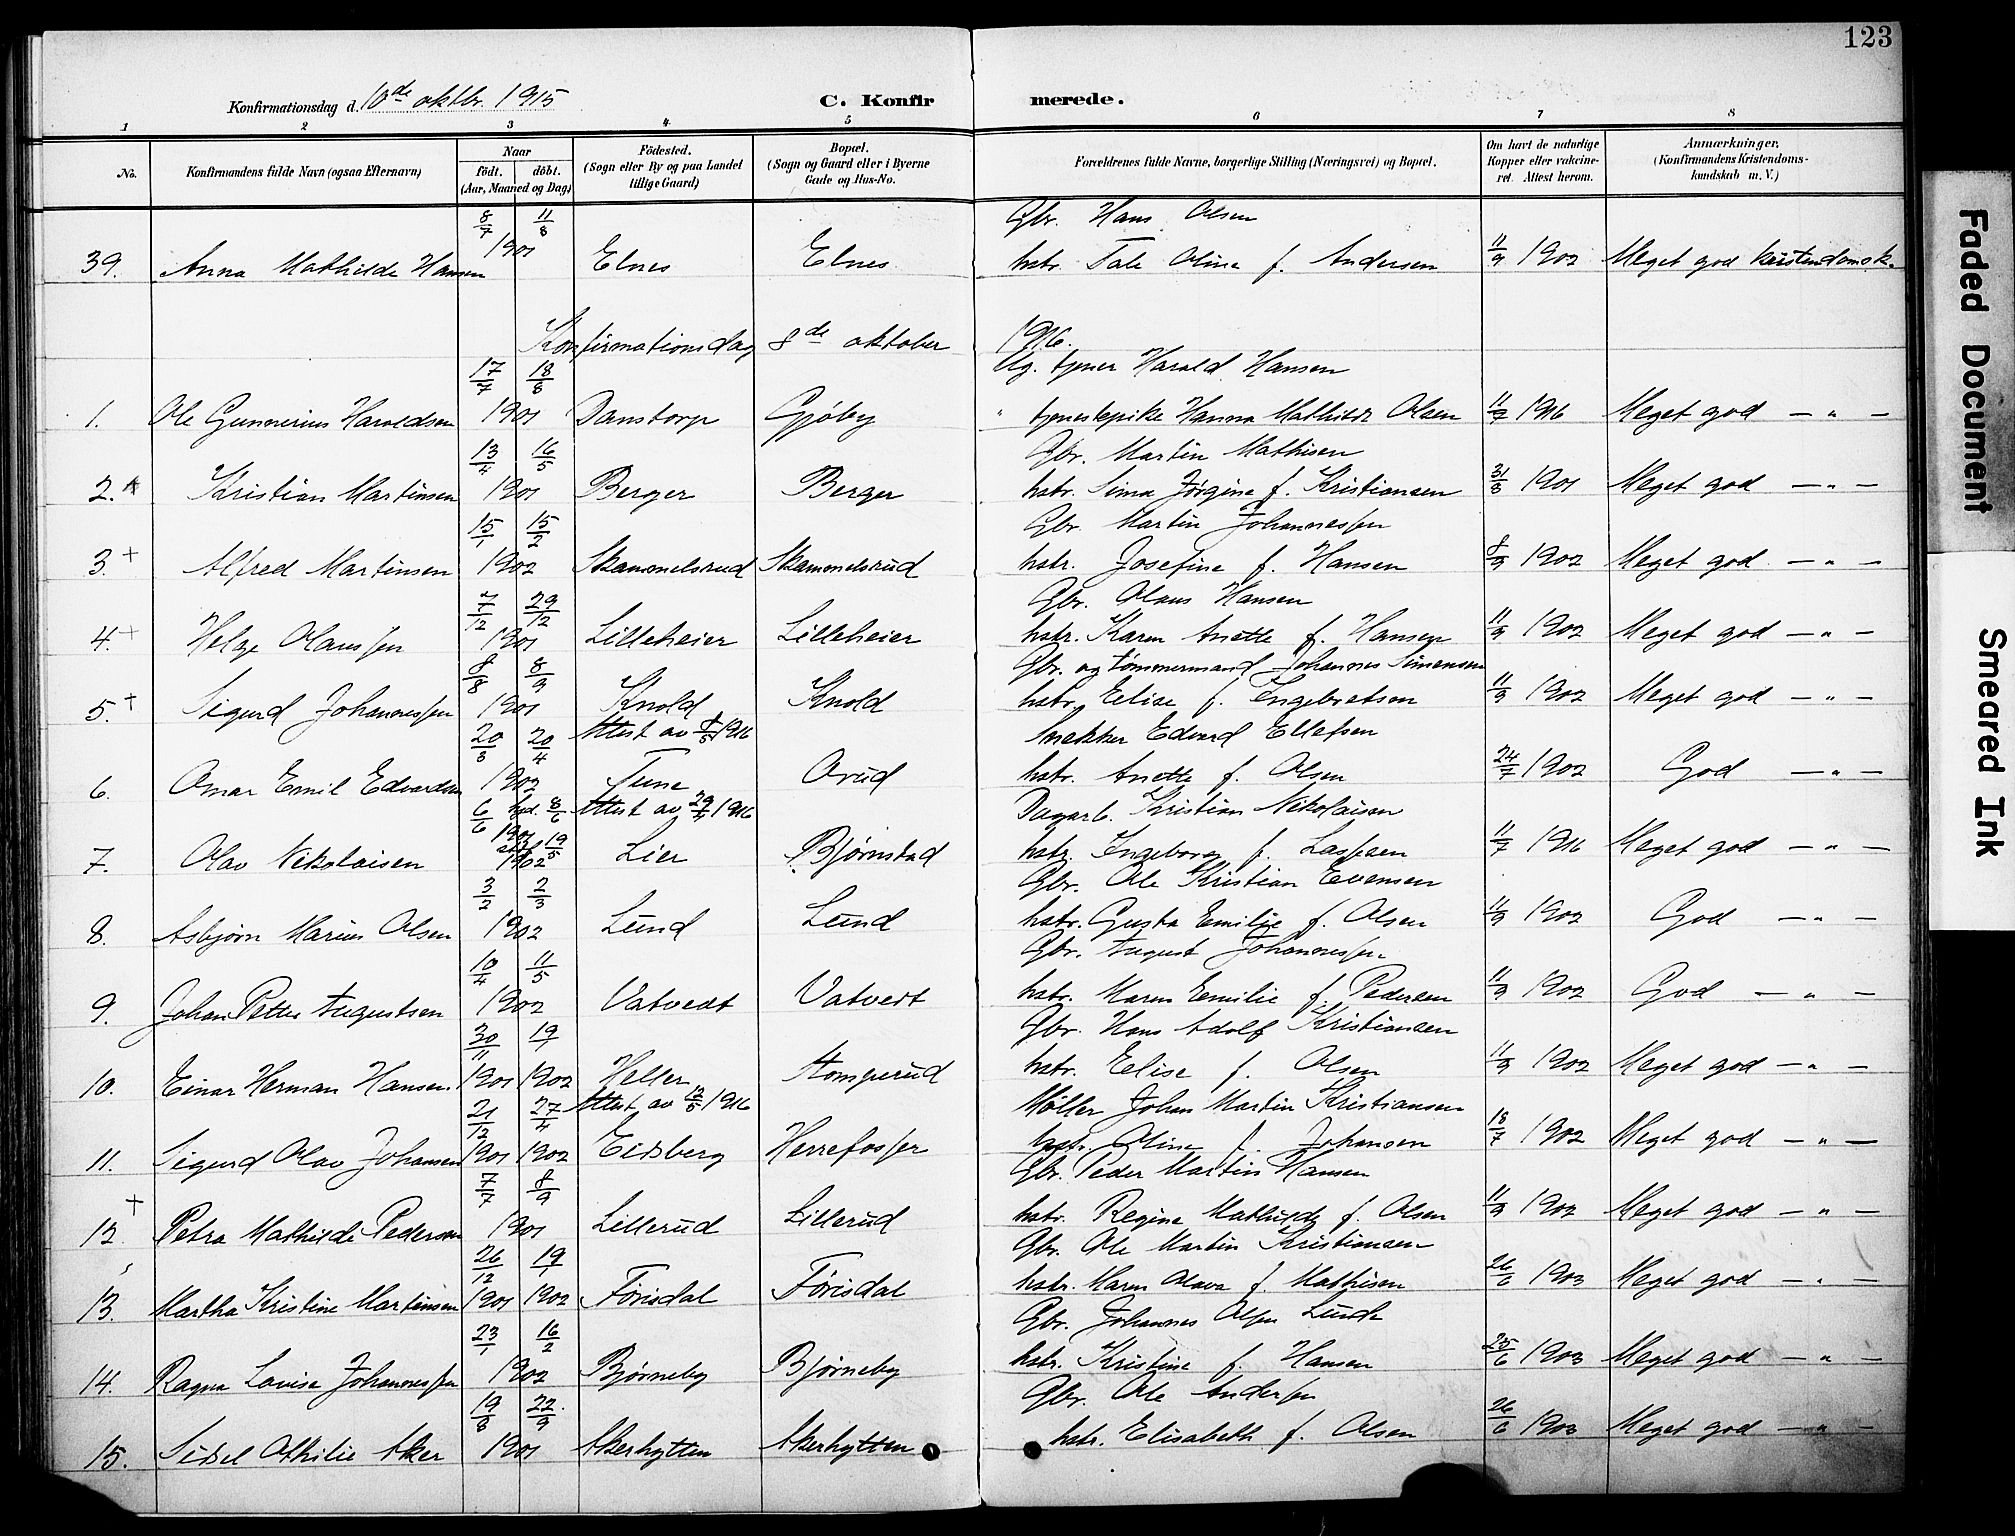 123
Konfirmationsdag d. 10de oktbr. 1915 C. Konfirmerede.
1 2 3 4 5 6 7 8
No. Konfirmandens fulde Navn (ogsaa Efternavn) Naar født. døbt. (Aar, Maaned og Dag) Födested. (Sogn eller By og paa Landet tillige Gaard) Bopæl. (Sogn og Gaard eller i Byerne Gade og Hus-No. Forældrenes fulde Navne, borgerlige Stilling (Næringsvei) og Bopæl. Om havt de naturlige Kopper eller vaccineret. Attest herom. Anmærkninger. (Konfirmandens Kristendomskundskab m. V.)
8/7 11/8 Gbr. Hans Olsen
39. Anna Mathilde Hansen 1901 Elnes Elnes hstr. Tale Oline f. Andersen 11/9 1902 Meget god kristendomsk.
Konfirmationsdag 8de oktober 1916.
17/7 18/8 Ug. tjener Harald Hansen
1. Ole Gunnerius Haraldsen 1901 Danstorp Gjøby " tjenestepike Hanna Mathilde Olsen 11/7 1916 Meget god — " —
13/4 16/5 Gbr. Martin Mathisen
2. Kristian Martinsen 1901 Berger Berger hstr. Sina Jørgine f. Kristiansen 31/8 1901 Meget god — " —
15/1 15/2 Gbr. Martin Johannessen
3. + Alfred Martinsen 1902 Skammelsrud Skammelsrud hstr. Josefine f. Hansen 8/9 1902 Meget god — " —
7/12 29/12 Gbr. Olaus Hansen
4. + Helge Olaussen 1901 Lilleheier Lilleheier hstr. Karen Anette f. Hansen 11/9 1902 Meget god — " —
8/8 8/9 Gbr. og tømmermand Johannes Simensen
5. + Sigurd Johannessen 1901 Knold Knold hstr. Elise f. Ingebretsen 11/9 1902 Meget god — " —
20/3 20/4 Attest av 1916 Snekker Edvard Ellefsen
6. Omar Emil Edvardsen 1902 Tune Orud hstr. Anette f. Olsen 24/7 1902 God — " —
6/6 hjd. 8/6 Attest av 1916 Dagarb. Kristian Nikolaisen
7. Olav Nikolaisen 1901 19/5 1902 Lier Bjørnstad hstr. Ingeborg f. Lassesen 11/7 1916 Meget god — " —
3/2 2/3 Gbr. Ole Kristian Evensen
8. Asbjørn Marius Olsen 1902 Lund Lund hstr. Gusta Emilie f. Olsen 11/9 1902 God — " —
10/4 11/5 Gbr. August Johannessen
9. Johan Petter Augustsen 1902 Vatvedt Vatvedt hstr. Maren Emilie f. Pedersen 11/9 1902 God — " —
30/11 19/1 Gbr. Hans Adolf Kristiansen
10. Einar Herman Hansen 1901 1902 Heller Stomperud hstr. Elise f. Olsen 11/9 1902 Meget god — " —
21/12 27/4 Attest av 12/5 1916 Møller Johan Martin Kristiansen
11. Sigurd Olav Johansen 1901 1902 Eidsberg Herrefosser hstr. Oline f. Johansen 18/7 1902 Meget god — " —
7/7 8/9 Gbr. Peder Martin Hansen
12. + Petra Mathilde Pedersen 1901 Lillerud Lillerud hstr. Regine Mathilde f. Olsen 11/9 1902 Meget god — " —
26/12 19/1 Gbr. Ole Martin Kristiansen
13. Martha Kristine Martinsen 1901 1902 Førisdal Førisdal hstr. Maren Olava f. Mathisen 26/6 1903 Meget god — " —
23/1 16/2 Gbr. Johannes Olsen Lund
14. Ragna Lovise Johannessen 1902 Bjørneby Bjørneby hstr. Kristine f. Hansen 25/6 1903 Meget god — " —
19/8 22/9 Gbr. Ole Andersen
15. Sidsel Othilie Aker 1901 Akerhytten Akerhytten hstr. Elisabeth f. Olsen 26/6 1903 Meget god — " —
Faded Document
Smeared Ink